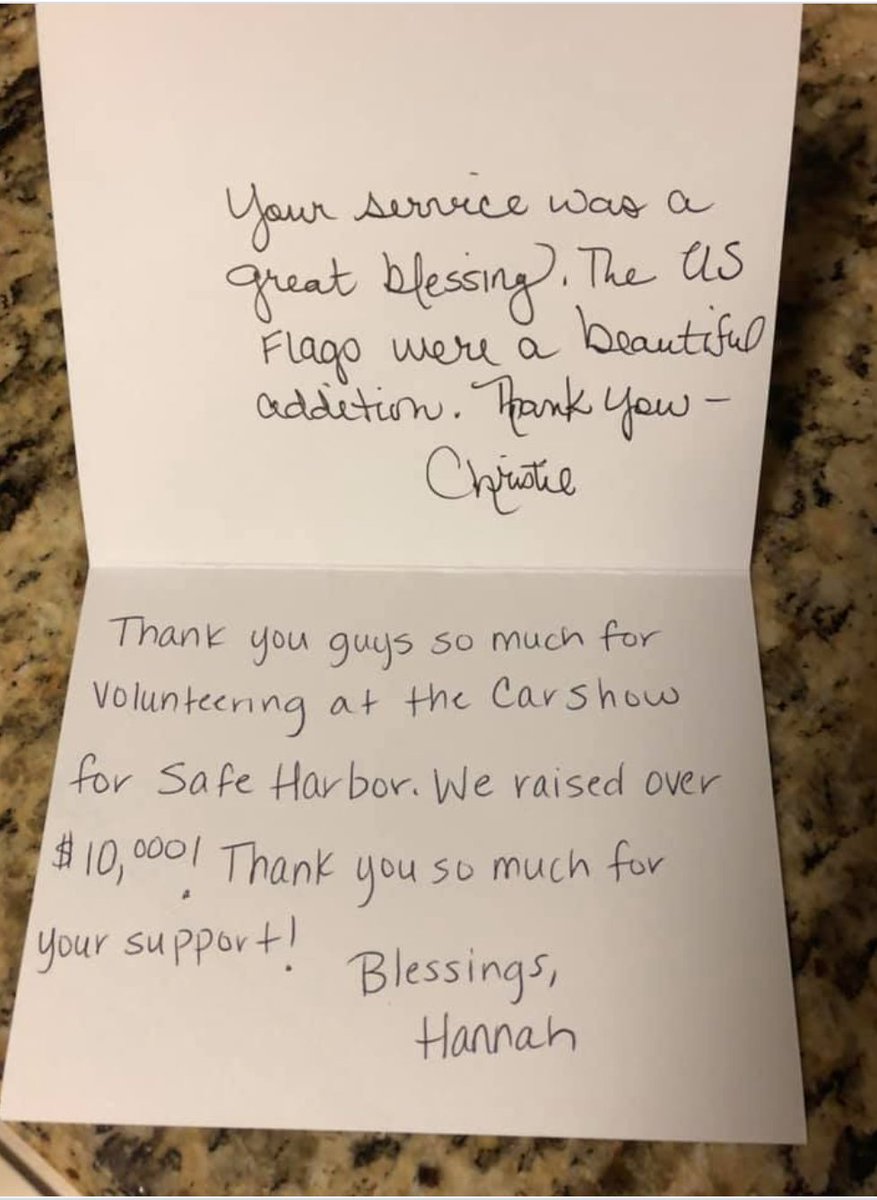 Your service was a
great blessing. The US
Flags were a beautiful
addition. Thank you -
Christie
Thank you guys so much for
volunteering at the Car Show
for Safe Harbor. We raised over
$10,000! Thank you so much for
your support!
Blessings,
Hannah